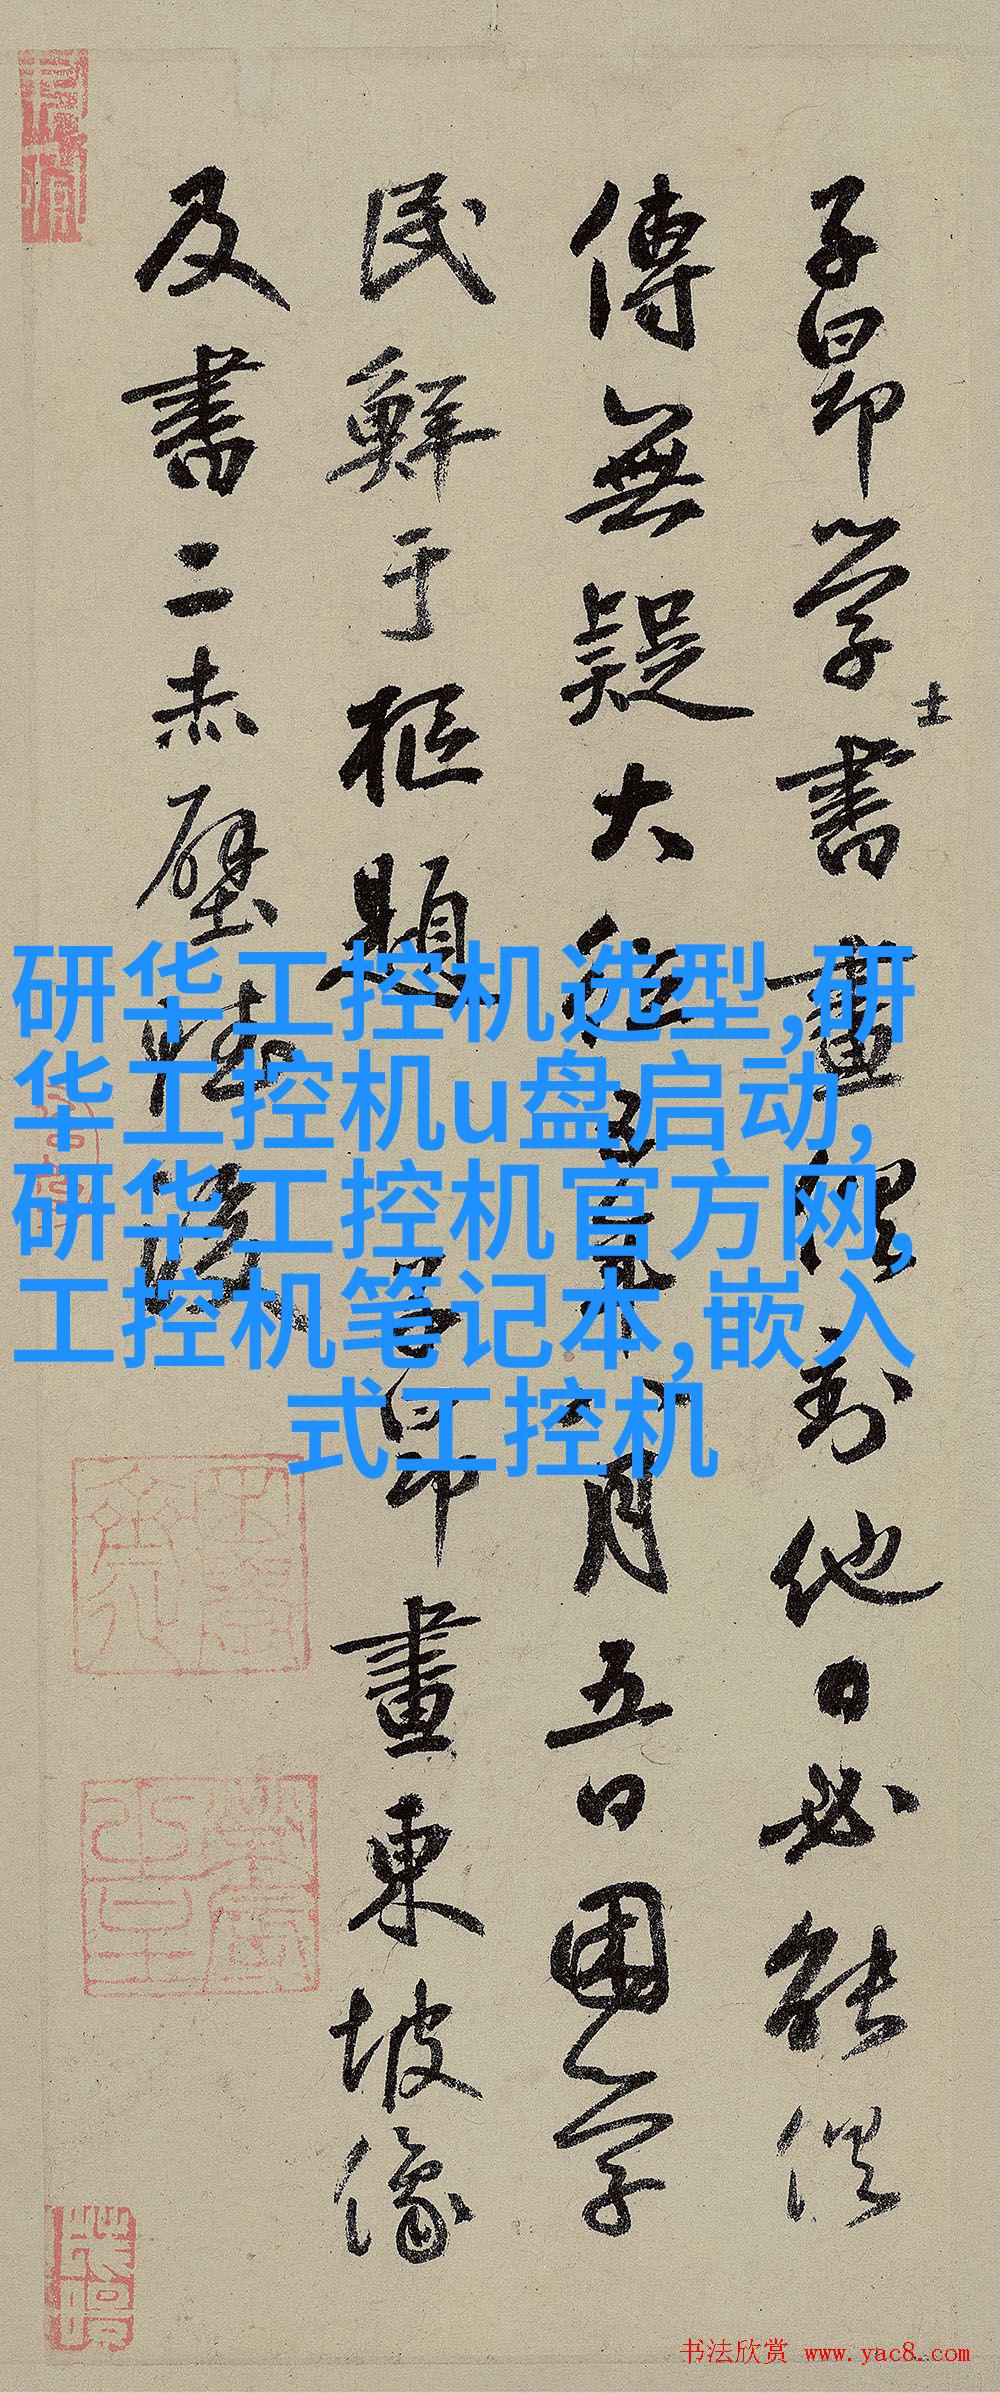 子昂學書畫俱到他日必能俱
士
傳無疑大德五年八月五日困學
民鮮于樞題子昂畫東坡像
及書二赤壁賦後
研华工控机选型,研
华工控机u盘启动,
研华工控机官方网,
工控机笔记本,嵌入
式工控机
书法欣赏 www.yac8.com